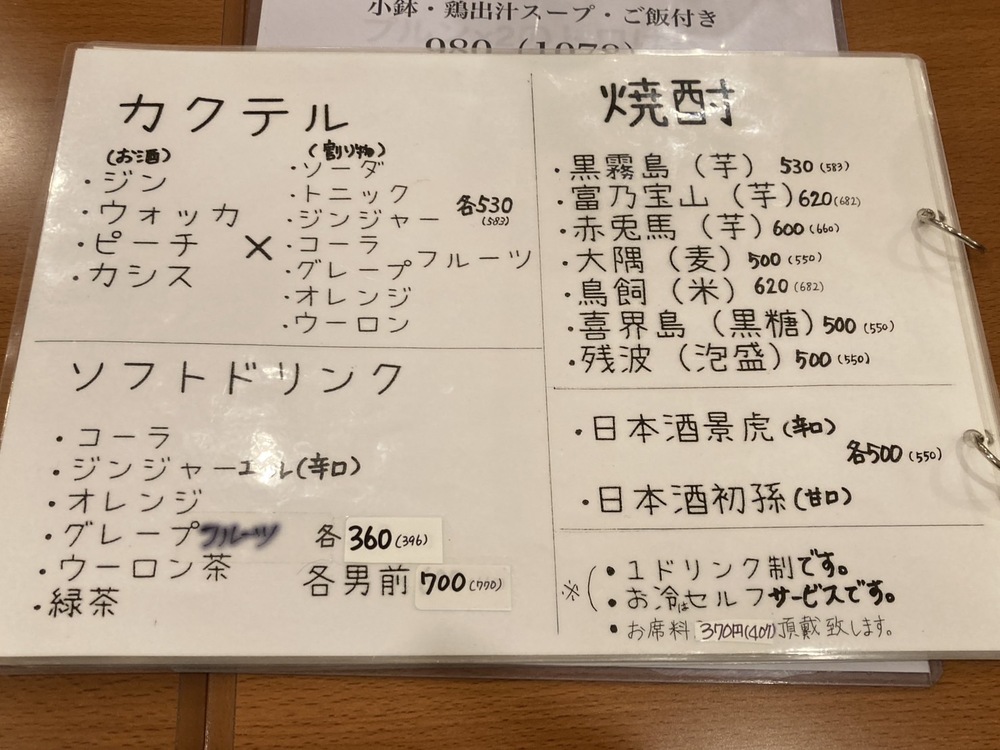 小鉢・鶏出汁スープ・ご飯付き
980（1078）
カクテル
(お酒)
・ジン
・ウォッカ
・ピーチ
・カシス
×
(割り物)
・ソーダ
・トニック
・ジンジャー
・コーラ
・グレープフルーツ
・オレンジ
・ウーロン
各530
(583)
ソフトドリンク
・コーラ
・ジンジャーエール(辛口)
・オレンジ
・グレープフルーツ
・ウーロン茶
・緑茶
各360(396)
各男前700(770)
焼酎
・黒霧島（芋）530(583)
・富乃宝山（芋）620(682)
・赤兎馬（芋）600(660)
・大隅（麦）500(550)
・鳥飼（米）620(682)
・喜界島（黒糖）500(550)
・残波（泡盛）500(550)
・日本酒景虎(辛口)
各500(550)
・日本酒初孫(甘口)
※(・1ドリンク制です。
・お冷はセルフサービスです。
・お席料370円(407)頂戴致します。